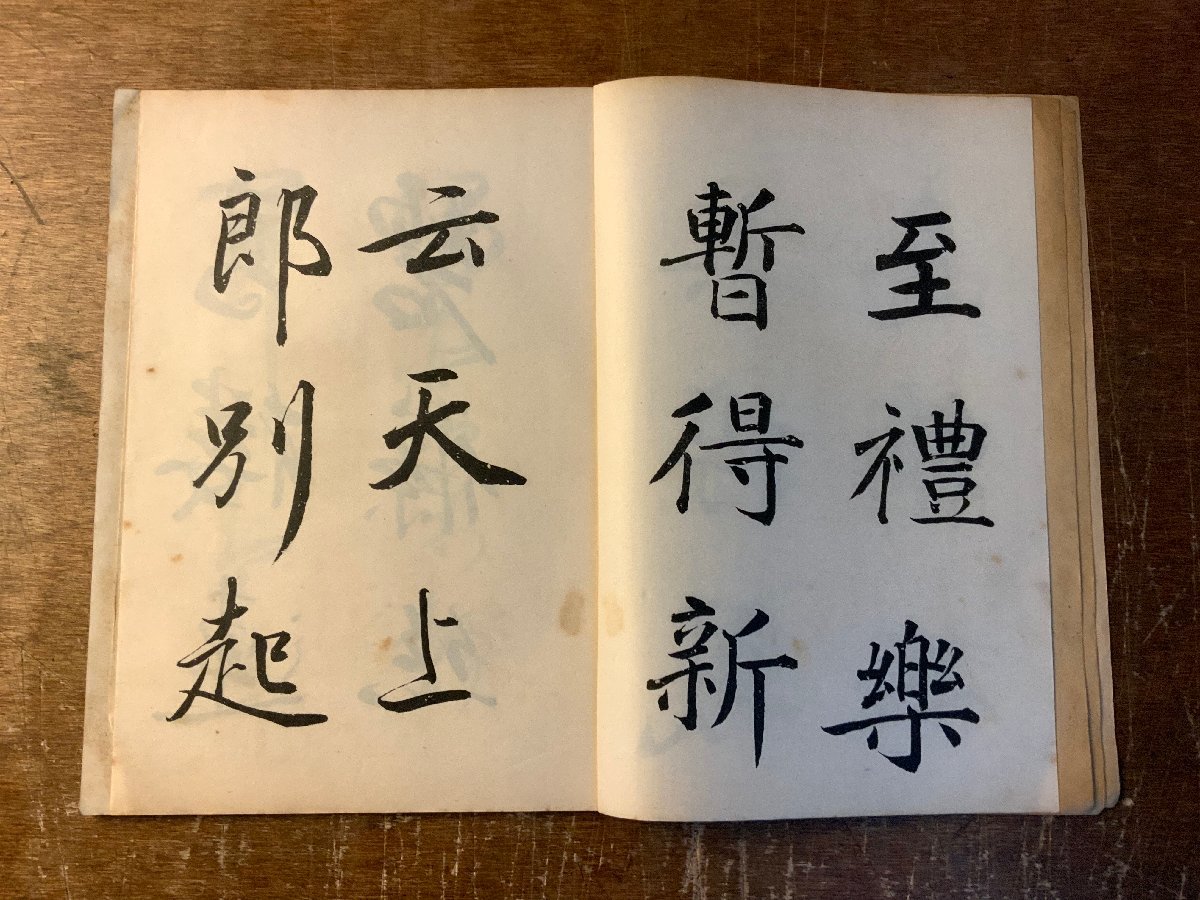 至禮樂
暫得新
云天上
郎別起